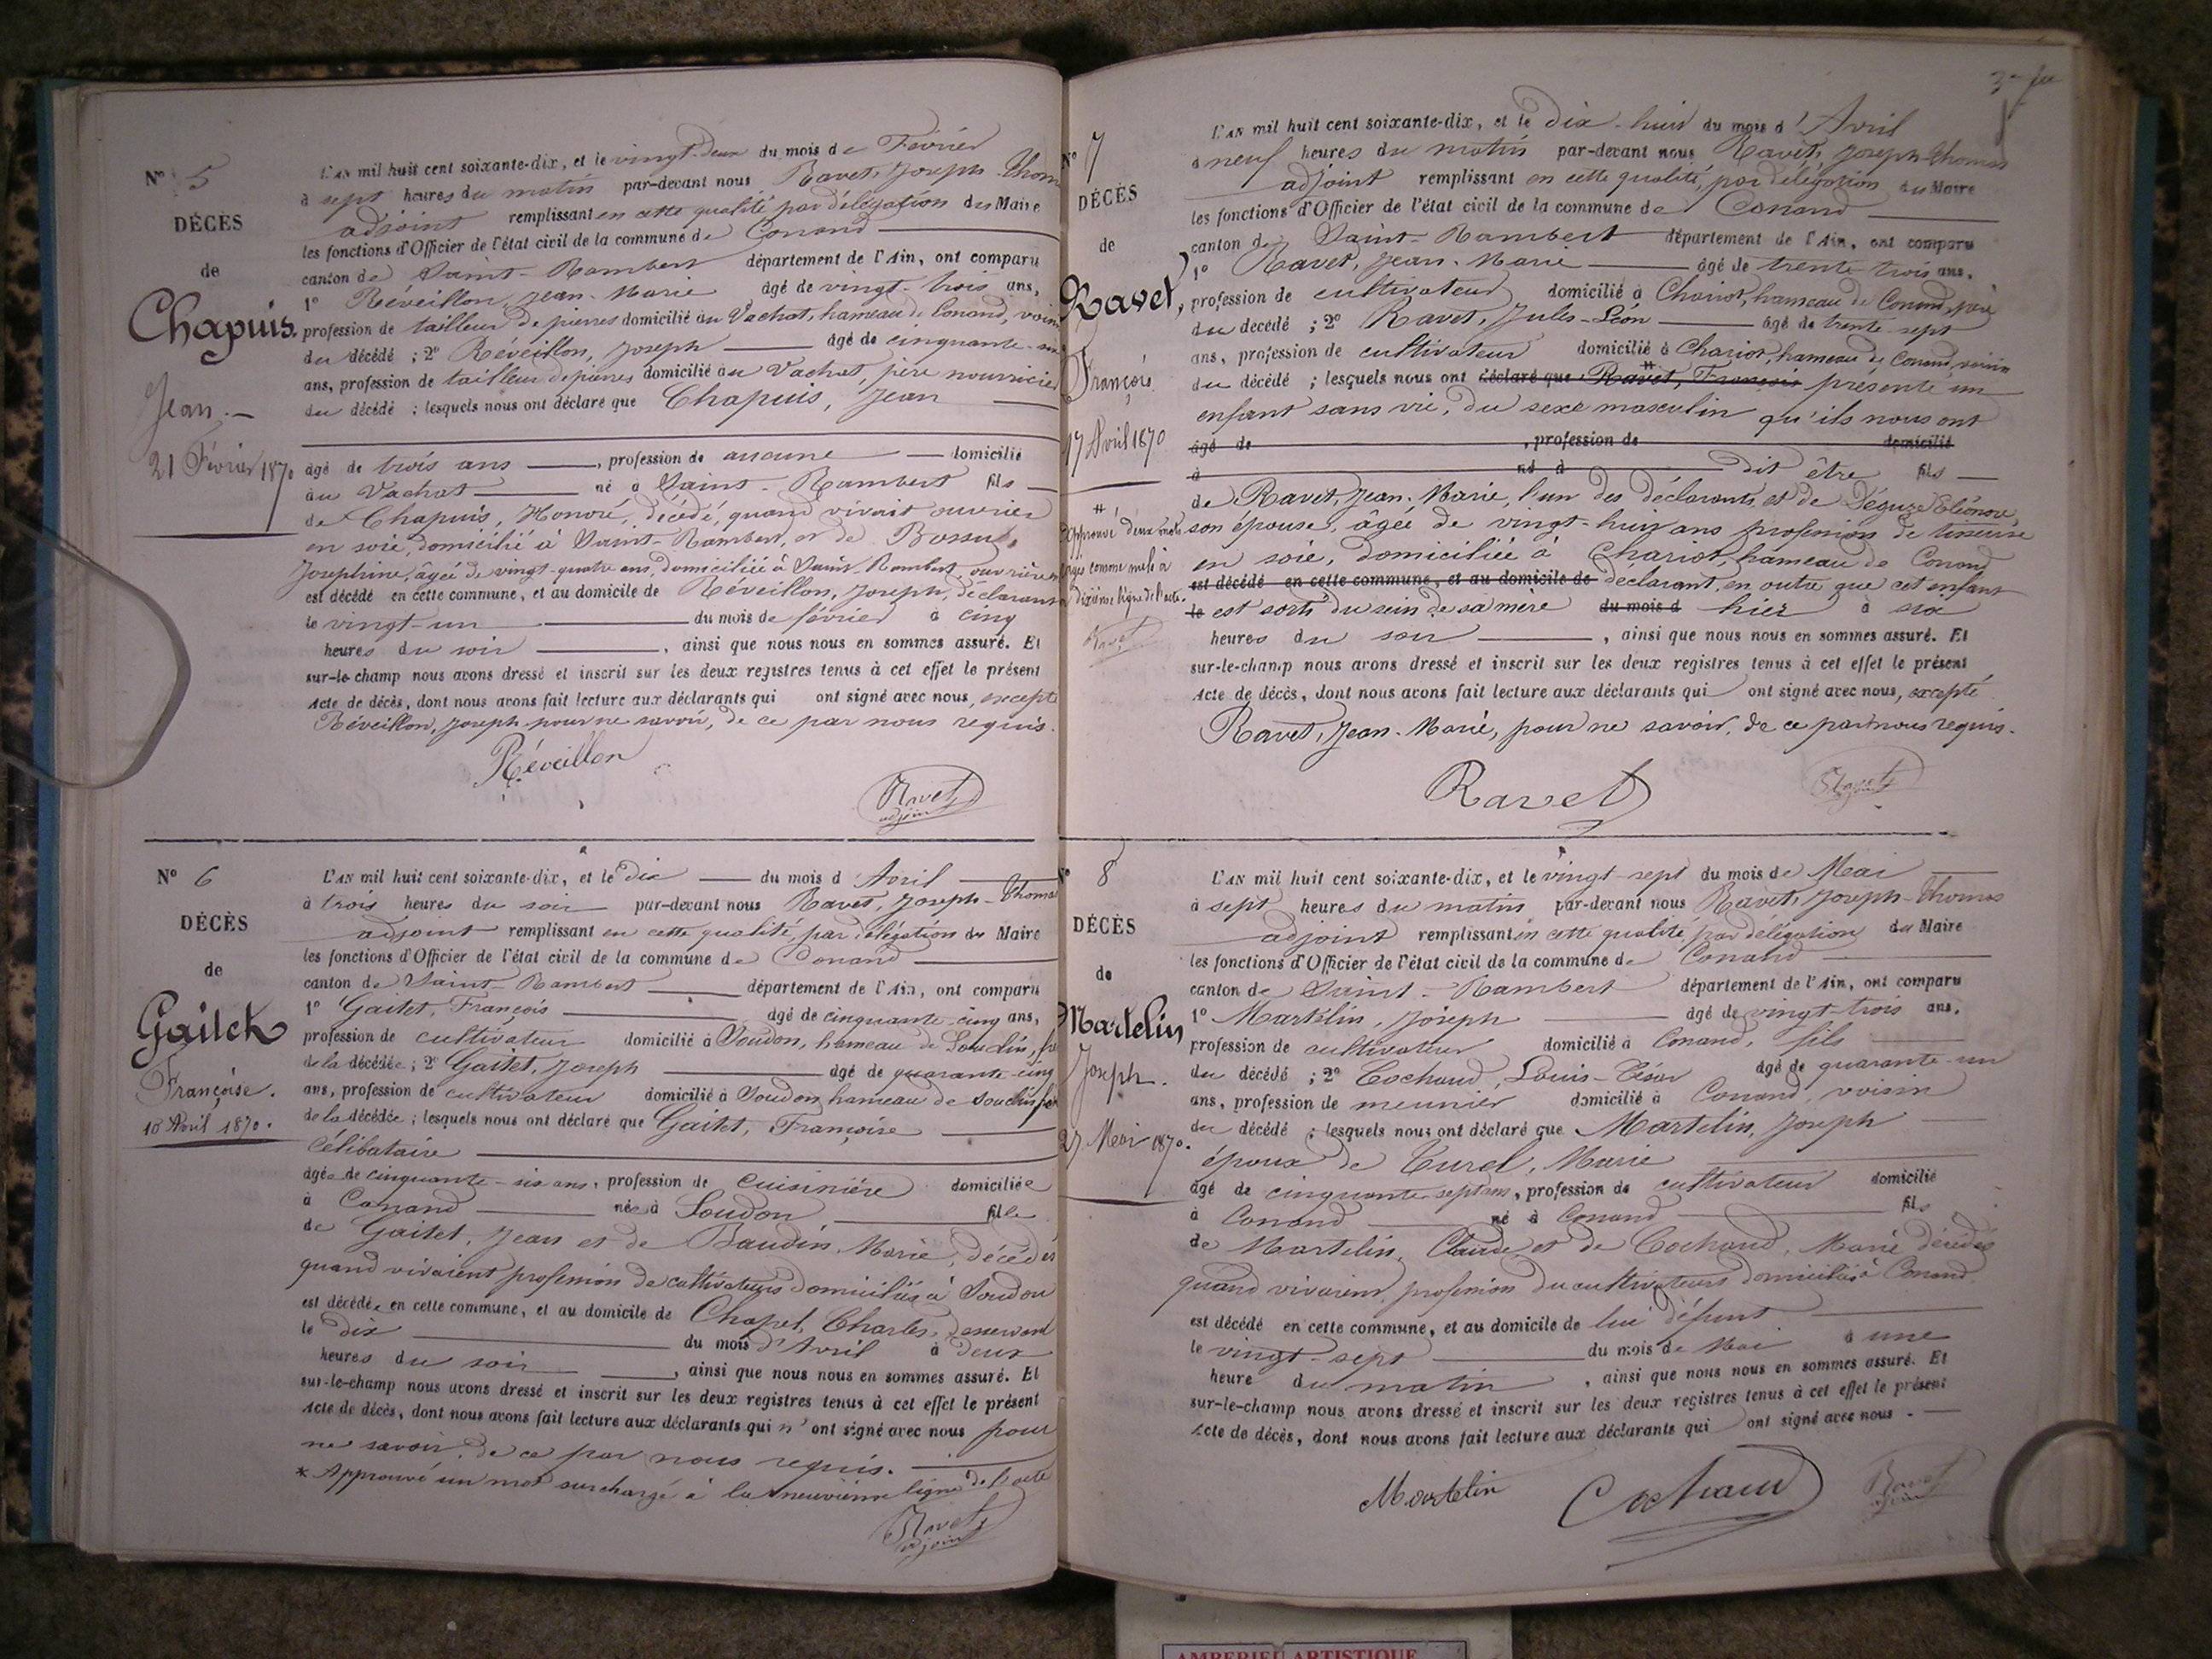 N° 5
DÉCÈS
de
Chapuis
Jean.
21 Février 1870
L'AN mil huit cent soixante-dix, et le vingt-deux du mois de Février
à sept heures du matin par-devant nous Ravet, Joseph-Thom
adjoint remplissant en cette qualité par délégation du Maire
les fonctions d'Officier de l'état civil de la commune de Conand
canton de Saint-Rambert département de l'Ain, ont comparu
1° Réveillon, Jean-Marie âgé de vingt-trois ans,
profession de tailleur de pierres domicilié au Vachat, hameau de Conand, voisin
du décédé ; 2° Réveillon, Joseph âgé de cinquante
ans, profession de tailleur de pierres domicilié au Vachat, père nourricier
du décédé ; lesquels nous ont déclaré que Chapuis, Jean
âgé de trois ans, profession de aucune domicilié
au Vachat né à Saint-Rambert fils
de Chapuis, Honoré, décédé, quand vivait ouvrier
en soie, domicilié à Saint-Rambert, et de Bossu
Josephine, âgée de vingt-quatre ans, domiciliée à Saint-Rambert, ouvrière
est décédé en cette commune, et au domicile de Réveillon, Joseph, déclarant
le vingt-un du mois de février à cinq
heures du soir, ainsi que nous nous en sommes assuré. Et
sur-le-champ nous avons dressé et inscrit sur les deux registres tenus à cet effet le présent
acte de décès, dont nous avons fait lecture aux déclarants qui ont signé avec nous, excepté
Réveillon, Joseph pour ne savoir, de ce par nous requis.
Réveillon
Ravet
adjoint
N° 6
DÉCÈS
de
Gaitet
Françoise.
10 Avril 1870.
L'AN mil huit cent soixante-dix, et le dix du mois d'Avril
à trois heures du soir par-devant nous Ravet, Joseph-Thomas
adjoint remplissant en cette qualité, par délégation du Maire
les fonctions d'Officier de l'état civil de la commune de Conand
canton de Saint-Rambert département de l'Ain, ont comparu
1° Gaitet, François âgé de cinquante-cinq ans,
profession de cultivateur domicilié à Soudon, hameau de
de la décédée ; 2° Gaitet, Joseph âgé de quarante-cinq
ans, profession de cultivateur domicilié à Soudon, hameau de
de la décédée ; lesquels nous ont déclaré que Gaitet, Françoise
célibataire
âgée de cinquante-six ans, profession de cuisinière domiciliée
à Conand née à Soudon fille
de Gaitet, Jean et de Baudin, Marie, décédés
quand vivaient profession de cultivateurs domiciliés à Soudon
est décédée en cette commune, et au domicile de Chapel, Charles, desservant
le dix du mois d'Avril à deux
heures du soir, ainsi que nous nous en sommes assuré. Et
sur-le-champ nous avons dressé et inscrit sur les deux registres tenus à cet effet le présent
acte de décès, dont nous avons fait lecture aux déclarants qui n'ont signé avec nous pour
ne savoir, de ce par nous requis.
* Approuvé un mot surchargé à la neuvième ligne de l'acte
Ravet
adjoint
N° 7
DÉCÈS
de
Ravet,
François
17 Avril 1870
#
Approuvé deux mots
comme nuls à
dixième ligne de l'acte.
Ravet
L'AN mil huit cent soixante-dix, et le dix-huit du mois d'Avril
à neuf heures du matin par-devant nous Ravet, Joseph-Thomas
adjoint remplissant en cette qualité, par délégation du Maire
les fonctions d'Officier de l'état civil de la commune de Conand
canton de Saint-Rambert département de l'Ain, ont comparu
1° Ravet, Jean-Marie âgé de trente-trois ans,
profession de cultivateur domicilié à Chariot, hameau de Conand, père
du décédé ; 2° Ravet, Jules-Léon âgé de trente-sept
ans, profession de cultivateur domicilié à Chariot, hameau de Conand, voisin
du décédé ; lesquels nous ont déclaré que # Ravet, François présenté un
enfant sans vie, du sexe masculin qu'ils nous ont
âgé de , profession de domicilié
à né à dit être fils
de Ravet, Jean-Marie, l'un des déclarants, et de Eléonore
son épouse, âgée de vingt-huit ans profession de tisseuse
en soie, domiciliée à Chariot, hameau de Conand
est décédé en cette commune, et au domicile de déclarant, en outre que cet enfant
le est sorti du sein de sa mère du mois d hier à six
heures du soir, ainsi que nous nous en sommes assuré. Et
sur-le-champ nous avons dressé et inscrit sur les deux registres tenus à cet effet le présent
acte de décès, dont nous avons fait lecture aux déclarants qui ont signé avec nous, excepté
Ravet, Jean-Marie, pour ne savoir, de ce par nous requis.
Ravet
Ravet
N° 8
DÉCÈS
de
Martelin
Joseph.
27 Mai 1870.
L'AN mil huit cent soixante-dix, et le vingt-sept du mois de Mai
à sept heures du matin par-devant nous Ravet, Joseph-Thomas
adjoint remplissant en cette qualité par délégation du Maire
les fonctions d'Officier de l'état civil de la commune de Conand
canton de Saint-Rambert département de l'Ain, ont comparu
1° Martelin, Joseph âgé de vingt-trois ans,
profession de cultivateur domicilié à Conand, fils
du décédé ; 2° Cochaud, Louis-César âgé de quarante-un
ans, profession de meunier domicilié à Conand, voisin
du décédé ; lesquels nous ont déclaré que Martelin, Joseph
époux de Turel, Marie
âgé de cinquante-sept ans, profession de cultivateur domicilié
à Conand né à Conand fils
de Martelin, Claude et de Cochaud, Marie décédés
quand vivaient, profession de cultivateurs domiciliés à Conand
est décédé en cette commune, et au domicile de lui défunt
le vingt-sept du mois de Mai à une
heure du matin, ainsi que nous nous en sommes assuré. Et
sur-le-champ nous avons dressé et inscrit sur les deux registres tenus à cet effet le présent
acte de décès, dont nous avons fait lecture aux déclarants qui ont signé avec nous.
Martelin
Cochaud
Ravet
adjoint
AMBERIEU ARTISTIQUE